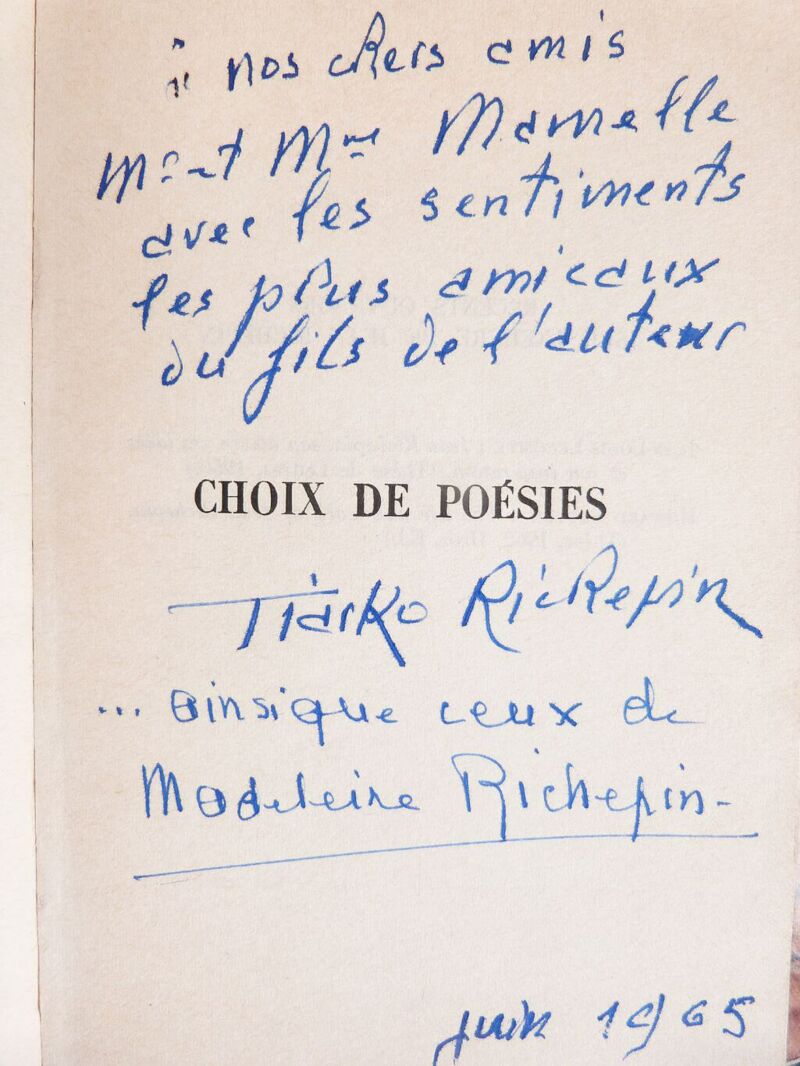 à nos chers amis
Mr et Mme Mamelle
avec les sentiments
les plus amicaux
du fils de l'auteur
CHOIX DE POÉSIES
Tiarko Richepin
... ainsi que ceux de
Madeleine Richepin -
juin 1965